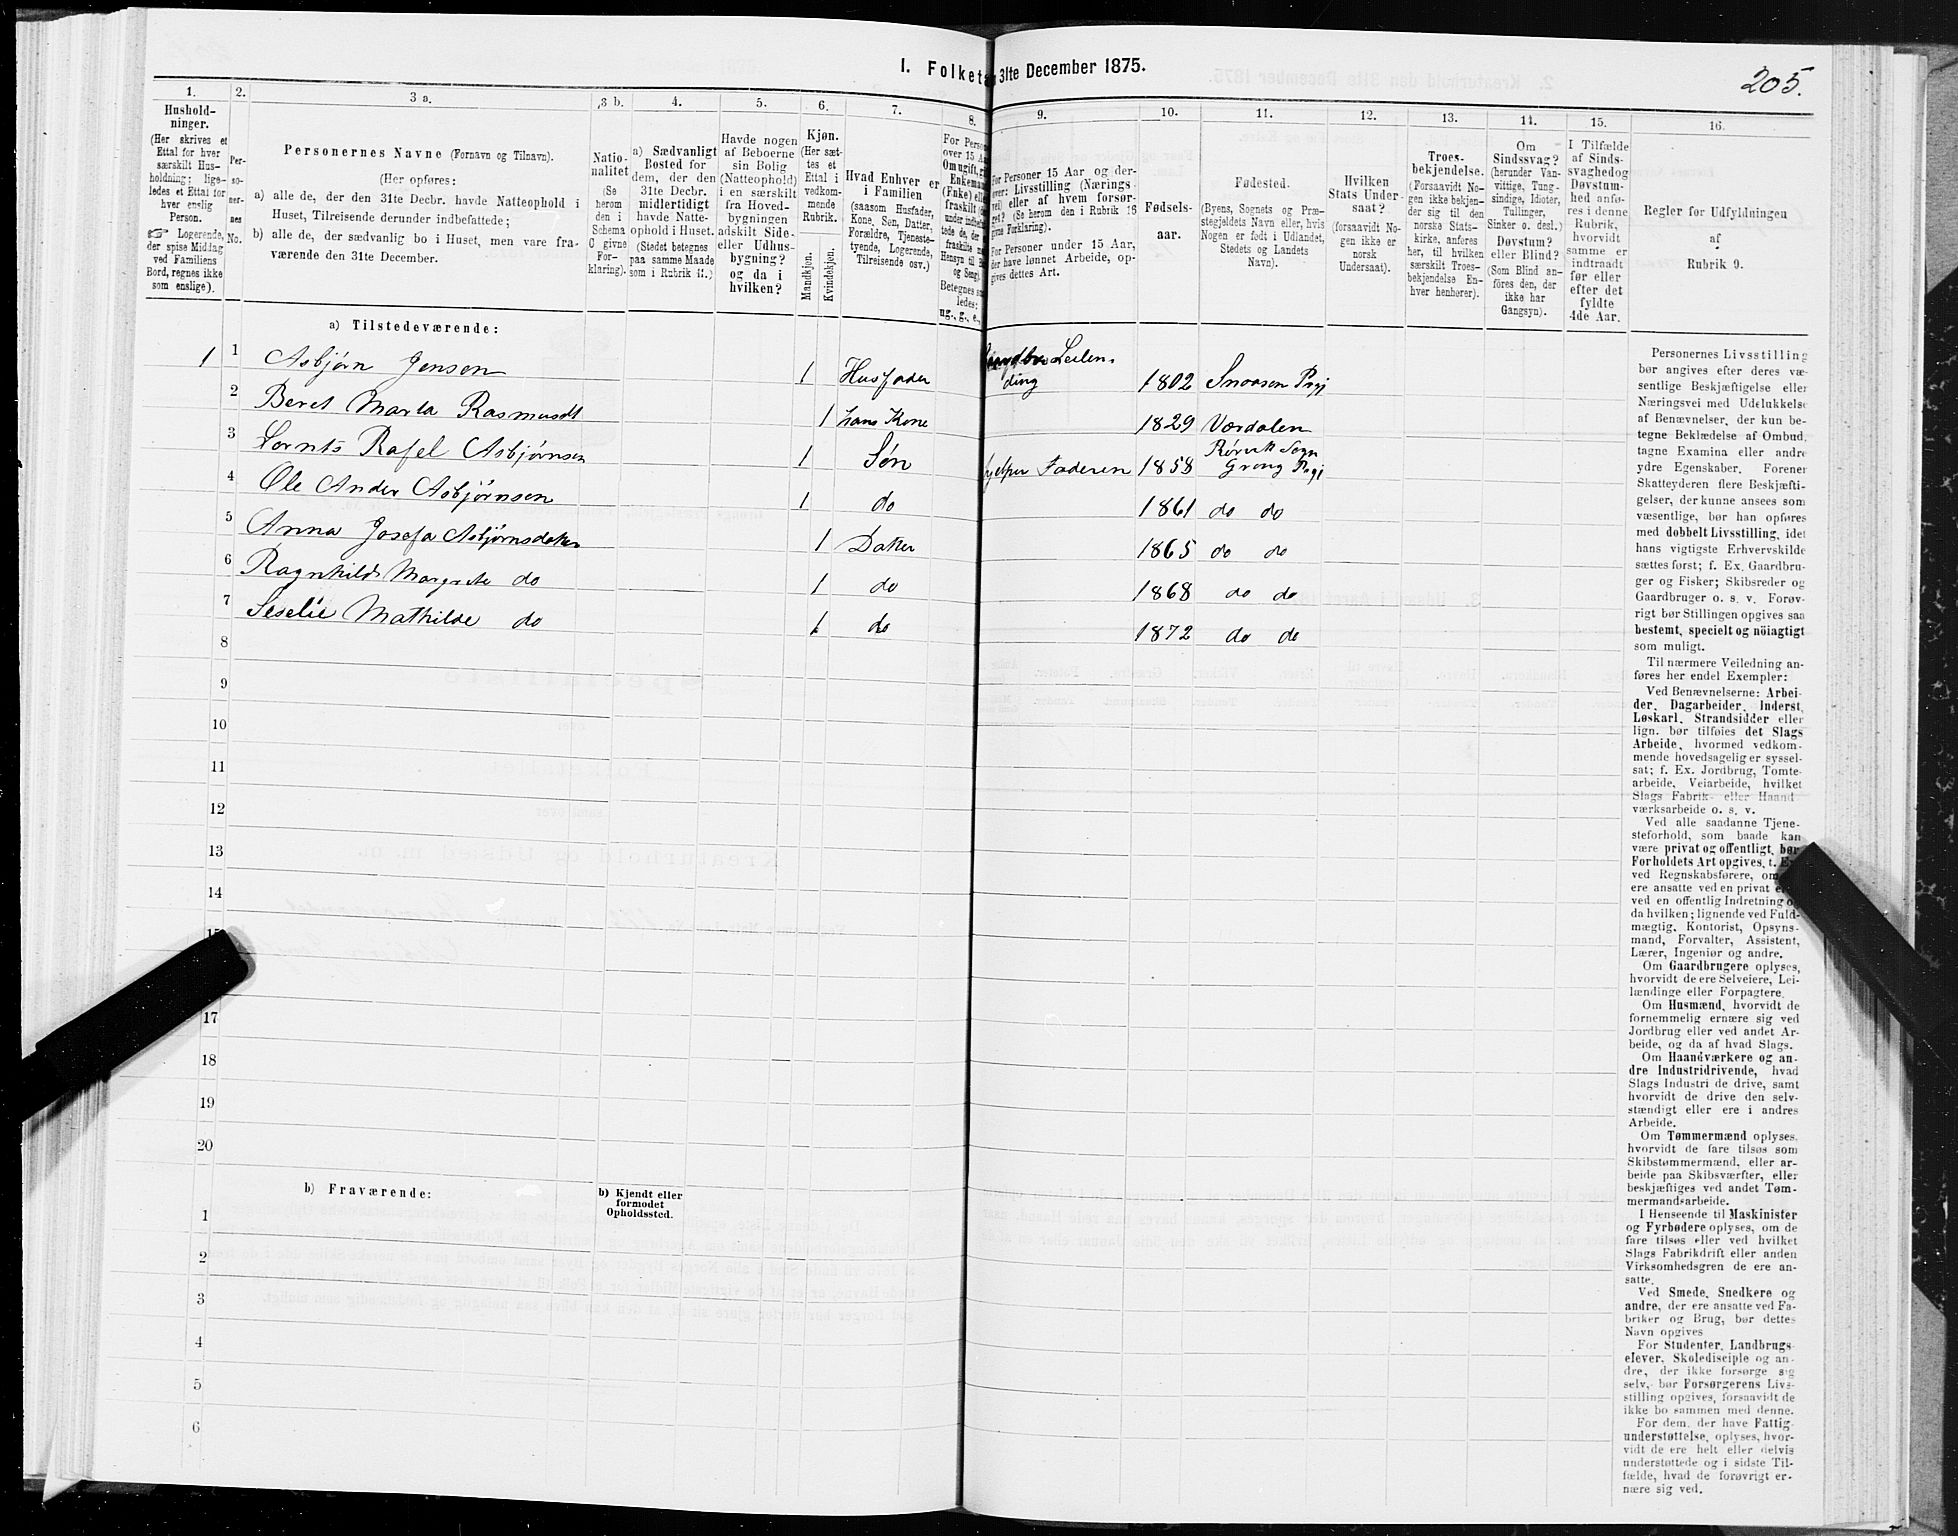 I. Folketæ 31te December 1875.
205.
1. 2. 3 a. 3 b. 4. 5. 6. 7. 8. 9. 10. 11. 12. 13. 14. 15. 16.
Hushold-
ninger.
(Her skrives et
Ettal for hver
særskilt Hus-
holdning; lige-
ledes et Ettal for
hver enslig
Person.
☞ Logerende,
der spise Middag
ved Familiens
Bord, regnes ikke
som enslige).
Per-
so-
ner-
nes
No.
Personernes Navne (Fornavn og Tilnavn).
(Her opføres:
a) alle de, der den 31te Decbr. havde Natteophold i
Huset, Tilreisende derunder indbefattede;
b) alle de, der sædvanlig bo i Huset, men vare fra-
værende den 31te December.
Natio-
nalitet
(Se
herom
den i
Schema
C givne
For-
klaring).
a) Sædvanligt
Bosted for
dem, der den
31te Decbr.
midlertidigt
havde Natte-
ophold i Huset.
(Stedet betegnes
paa samme Maade
som i Rubrik 11.)
Havde nogen
af Beboerne
sin Bolig
(Natteophold)
i en særskilt
fra Hoved-
bygningen
adskilt Side-
eller Udhus-
bygning?
og da i
hvilken?
Kjøn.
(Her sæt-
tes et
Ettal i
vedkom-
mende
Rubrik.
Mandkjøn.
Kvindekjøn.
Hvad Enhver er
i Familien
(saasom Husfader,
Kone, Søn, Datter,
Forældre, Tjeneste-
tyende, Logerende,
Tilreisende osv.)
For Person
over 15 Aa
Om ugift, gi
Enkeman
(Enke) elle
fraskilt
under indbefat
tede de, der
fraskilte
Hensyn til B
og Seng
Betegnes saa
ledes:
ug., g., e.,
For Personer 15 Aar og der-
over: Livsstilling (Nærings-
vei) eller af hvem forsør-
get? (Se herom den i Rubrik 16
givne Forklaring).
For Personer under 15 Aar,
der have lønnet Arbeide, op-
gives dettes Art.
Fødsels-
aar.
Fødested.
(Byens, Sognets og Præ-
stegjeldets Navn eller, hvis
Nogen er født i Udlandet,
Stedets og Landets
Navn).
Hvilken
Stats Under-
saat?
(forsaavidt No-
gen ikke er
norsk
Undersaat).
Troes-
bekjendelse.
(Forsaavidt No-
gen ikke bekjen-
der sig til den
norske Stats-
kirke, anføres
her, til hvilken
særskilt Troes-
bekjendelse En-
hver henhører).
Om
Sindssvag?
(herunder Van-
vittige, Tung-
sindige, Idioter,
Tullinger,
Sinker o. desl.)
Døvstum?
eller Blind?
(Som Blind an-
føres den, der
ikke har
Gangsyn).
I Tilfælde
af Sinds-
svaghed og
Døvstum-
hed anfø-
res i denne
Rubrik,
hvorvidt
samme er
indtraadt
før eller
efter det
fyldte
4de Aar.
Regler for Udfyldningen
af
Rubrik 9.
a) Tilstedeværende:
1 1 Asbjørn Jensen 1 Husfader Leilen-
ding 1802 Snaasen Prgj
2 Beret Marta Rasmusdt 1 hans Kone 1829 Værdalen
3 Lornts Rafel Asbjørnsen 1 Søn hjelper Faderen 1858 Rørvik Sogn
Grong Prgj
4 Ole Ander Asbjørnsen 1 do 1861 do do
5 Anna Josefa Asbjørnsdatter 1 Datter 1865 do do
6 Ragnhild Margrete do 1 do 1868 do do
7 Seselie Mathilde do 1 do 1872 do do
8
9
10
11
12
13
14
15
17
18
19
20
b) Fraværende:
b) Kjendt eller
formodet
Opholdssted.
1
2
3
4
5
6
Personernes Livsstilling
bør angives efter deres væ-
sentlige Beskjæftigelse eller
Næringsvei med Udelukkelse
af Benævnelser, der kun be-
tegne Beklædelse af Ombud,
tagne Examina eller andre
ydre Egenskaber. Forener
Skatteyderen flere Beskjæfti-
gelser, der kunne ansees som
væsentlige, bør han opføres
med dobbelt Livsstilling, idet
hans vigtigste Erhvervskilde
sættes først; f. Ex. Gaardbru-
ger og Fisker; Skibsreder og
Gaardbruger o. s. v. Forøv-
rigt bør Stillingen opgives saa
bestemt, specielt og nöiagtigt
som muligt.
Til nærmere Veiledning an-
føres her endel Exempler:
Ved Benævnelserne: Arbei-
der, Dagarbeider, Inderst,
Løskarl, Strandsidder eller
lign. bør tilføies det Slags
Arbeide, hvormed vedkom-
mende hovedsagelig er syssel-
sat; f. Ex. Jordbrug, Tomte-
arbeide, Veiarbeide, hvilket
Slags Fabrik- eller Haand-
værksarbeide o. s. v.
Ved alle saadanne Tjene-
steforhold, som baade kan
være privat og offentligt, bør
Forholdets Art opgives, f. Ex.
ved Regnskabsførere, om
ere ansatte ved en privat el
ved en offentlig Indretning o
da hvilken; lignende ved Fuld-
mægtig, Kontorist, Opsyns-
mand, Forvalter, Assistent,
Lærer, Ingeniør og andre.
Om Gaardbrugere oplyses,
hvorvidt de ere Selveiere, Lei-
lændinge eller Forpagtere.
Om Husmænd, hvorvidt de
fornemmelig ernære sig ved
Jordbrug eller ved andet Ar-
beide, og da af hvad Slags.
Om Haandværkere og an-
dre Industridrivende, hvad
Slags Industri de drive, samt
hvorvidt de drive den selv-
stændigt eller ere i andres
Arbeide.
Om Tømmermænd oplyses,
hvorvidt de fare tilsøs som
Skibstømmermænd, eller ar-
beide paa Skibsværfter, eller
beskjæftiges ved andet Tøm-
mermandsarbeide.
I Henseende til Maskinister
og Fyrbødere oplyses, om de
fare tilsøs eller ved hvilket
Slags Fabrikdrift eller anden
Virksomhedsgren de ere an-
satte.
Ved Smede, Snedkere og
andre, der ere ansatte ved Fa-
briker og Brug, bør dettes
Navn opgives
For Studenter, Landbrugs-
elever, Skoledisciple og an-
dre, der ikke forsørge sig
selv, bør Forsørgerens Livs-
stilling opgives, forsaavidt de
ikke bo sammen med denne.
For dem, der have Fattig-
understøttelse, oplyses, hvor-
vidt de ere helt eller delvis
understøttede og i sidste Til-
fælde, hvad de forøvrigt er-
nære sig ved.